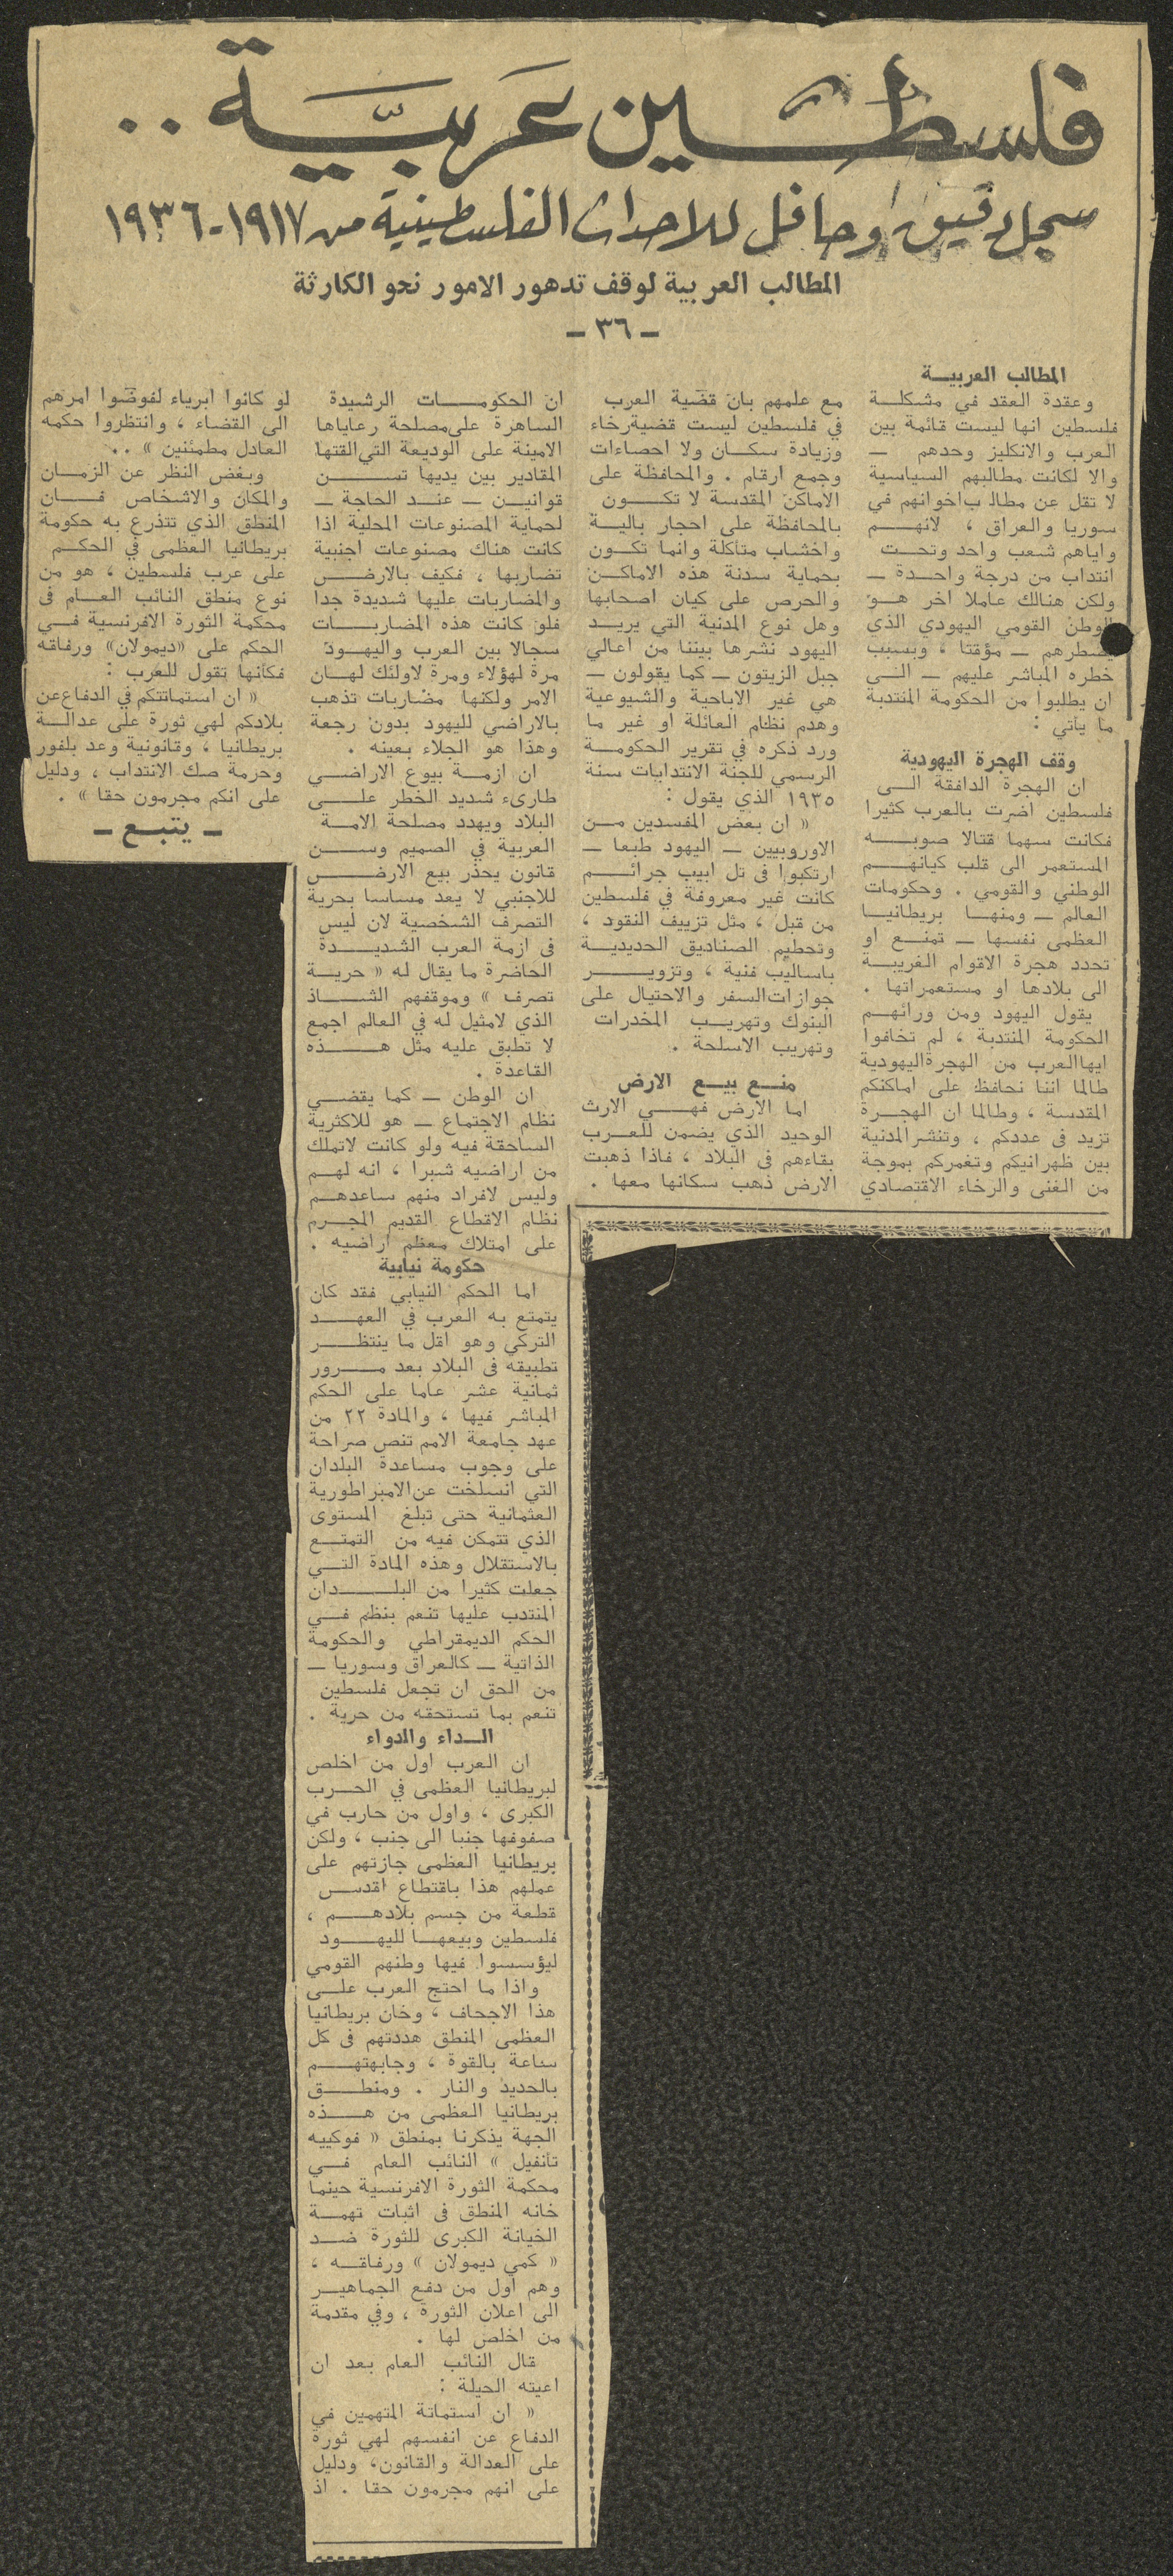 فلسطين عربية ..
سجل دقيق وحافل للاحداث الفلسطينية من ١٩١٧-١٩٣٦
المطالب العربية لوقف تدهور الامور نحو الكارثة
- ٣٦ -
المطالب العربيـــة
وعقدة العقد في مشكلـــة
فلسطين انها ليست قائمة بين
العرب والانكليز وحدهم —
والا لكانت مطالبهم السياسية
لا تقل عن مطالب اخوانهم في
سوريا والعراق ، لانهـــم
واياهم شعب واحد وتحـــت
انتداب من درجة واحـــدة —
ولكن هنالك عاملا اخر هـــو
الوطن القومي اليهودي الذي
يضطرهم — مؤقتا ، وبسبب
خطره المباشر عليهم — الـــى
ان يطلبوا من الحكومة المنتدبة
ما يأتي :
وقف الهجرة اليهودية
ان الهجرة الدافقة الـــى
فلسطين اضرت بالعرب كثيرا
فكانت سهما قتالا صوبـــه
المستعمر الى قلب كيانهـــم
الوطني والقومي . وحكومات
العالم — ومنهـــا بريطانيـــا
العظمى نفسها — تمنـــع او
تحدد هجرة الاقوام الغريبـــة
الى بلادها او مستعمراتها .
يقول اليهود ومن ورائهـــم
الحكومة المنتدبة ، لم تخافوا
ايها العرب من الهجرة اليهودية
طالما اننا نحافظ على اماكنكم
المقدسة ، وطالما ان الهجـــرة
تزيد فى عددكم ، وتنشر المدنية
بين ظهرانيكم وتغمركم بموجة
من الغنى والرخاء الاقتصادي
مع علمهم بان قضية العرب
في فلسطين ليست قضية رخاء
وزيادة سكـــان ولا احصاءات
وجمع ارقام . والمحافظة على
الاماكن المقدسة لا تكـــون
بالمحافظة على احجار باليـــة
واخشاب متآكلة وانما تكـــون
بحماية سدنة هذه الاماكـــن
والحرص على كيان اصحابها
وهل نوع المدنية التي يريـــد
اليهود نشرها بيننا من اعالي
جبل الزيتون — كما يقولون —
هي غير الاباحية والشيوعية
وهدم نظام العائلة او غير ما
ورد ذكره في تقرير الحكومـــة
الرسمي للجنة الانتدابات سنة
١٩٣٥ الذي يقول :
« ان بعض المفسدين مـــن
الاوروبيين — اليهود طبعا —
ارتكبوا فى تل ابيب جرائـــم
كانت غير معروفة في فلسطين
من قبل ، مثل تزييف النقود ،
وتحطيم الصناديق الحديديـــة
باساليب فنية ، وتزويـــر
جوازات السفر والاحتيال على
البنوك وتهريـــب المخدرات
وتهريب الاسلحة .
منـــع بيـــع الارض
اما الارض فهـــي الارث
الوحيد الذي يضمن للعـــرب
بقاءهم فى البلاد ، فاذا ذهبت
الارض ذهب سكانها معها .
ان الحكومـــات الرشيدة
الساهرة على مصلحة رعاياها
الامينة على الوديعة التي القتها
المقادير بين يديها تســـن
قوانيـــن — عنـــد الحاجة —
لحماية المصنوعات المحلية اذا
كانت هناك مصنوعات اجنبية
تضاربها ، فكيف بالارض
والمضاربات عليها شديدة جدا
فلو كانت هذه المضاربـــات
سجالا بين العرب واليهـــود
مرة لهؤلاء ومرة لاولئك لهـــان
الامر ولكنها مضاربات تذهب
بالاراضي لليهود بدون رجعة
وهذا هو الجلاء بعينه .
ان ازمـــة بيوع الاراضـــي
طارىء شديد الخطر علـــى
البلاد ويهدد مصلحة الامـــة
العربية في الصميم وســـن
قانون يحذر بيع الارض
للاجنبي لا يعد مساسا بحرية
التصرف الشخصية لان ليس
فى ازمة العرب الشديـــدة
الحاضرة ما يقال له « حريـــة
تصرف » وموقفهم الشـــاذ
الذي لا مثيل له في العالم اجمع
لا تطبق عليه مثل هـــذه
القاعدة .
ان الوطن — كما يقضـــي
نظام الاجتماع — هو للاكثرية
الساحقة فيه ولو كانت لا تملك
من اراضيه شبرا ، انه لهـــم
وليس لافراد منهم ساعدهـــم
نظام الاقطاع القديم المجـــرم
على امتلاك معظم اراضيه .
حكومة نيابية
اما الحكم النيابي فقد كان
يتمتع به العرب في العهـــد
التركي وهو اقل ما ينتظـــر
تطبيقه فى البلاد بعد مـــرور
ثمانية عشر عاما على الحكم
المباشر فيها ، والمادة ٢٢ من
عهد جامعة الامم تنص صراحة
على وجوب مساعدة البلدان
التي انسلخت عن الامبراطورية
العثمانية حتى تبلغ المستوى
الذي تتمكن فيه من التمتـــع
بالاستقلال وهذه المادة التـــي
جعلت كثيرا من البلـــدان
المنتدب عليها تنعم بنظم فـــي
الحكم الديمقراطي والحكومة
الذاتية — كالعراق وسوريا —
من الحق ان تجعل فلسطين
تنعم بما تستحقه من حرية .
الـــداء والدواء
ان العرب اول من اخلص
لبريطانيا العظمى في الحـــرب
الكبرى ، واول من حارب في
صفوفها جنبا الى جنب ، ولكن
بريطانيا العظمى جازتهم على
عملهم هذا باقتطاع اقدس
قطعة من جسم بلادهـــم ،
فلسطين وبيعهـــا لليهـــود
ليؤسسوا فيها وطنهم القومي
واذا ما احتج العرب علـــى
هذا الاجحاف ، وخان بريطانيا
العظمى المنطق هددتهم فى كل
ساعة بالقوة ، وجابهتهـــم
بالحديد والنار . ومنطـــق
بريطانيا العظمى من هـــذه
الجهة يذكرنا بمنطق « فوكييه
تانفيل » النائب العام فـــي
محكمة الثورة الافرنسية حينما
خانه المنطق فى اثبات تهمـــة
الخيانة الكبرى للثورة ضـــد
« كمي ديمولان » ورفاقـــه ،
وهم اول من دفع الجماهيـــر
الى اعلان الثورة ، وفي مقدمة
من اخلص لها .
قال النائب العام بعد ان
اعيته الحيلة :
« ان استماتة المتهمين في
الدفاع عن انفسهم لهي ثورة
على العدالة والقانون، ودليل
على انهم مجرمون حقا . اذ
لو كانوا ابرياء لفوضوا امرهم
الى القضاء ، وانتظروا حكمه
العادل مطمئنين » ..
وبغض النظر عن الزمـــان
والمكان والاشخاص فـــان
المنطق الذي تتذرع به حكومة
بريطانيا العظمى في الحكـــم
على عرب فلسطين ، هو من
نوع منطق النائب العـــام فى
محكمة الثورة الافرنسية فـــي
الحكم على «ديمولان» ورفاقه
فكأنها تقول للعرب :
« ان استماتتكم في الدفاع عن
بلادكم لهي ثورة على عدالـــة
بريطانيا ، وقانونية وعد بلفور
وحرمة صك الانتداب ، ودليل
على انكم مجرمون حقا » .
— يتبـــع —